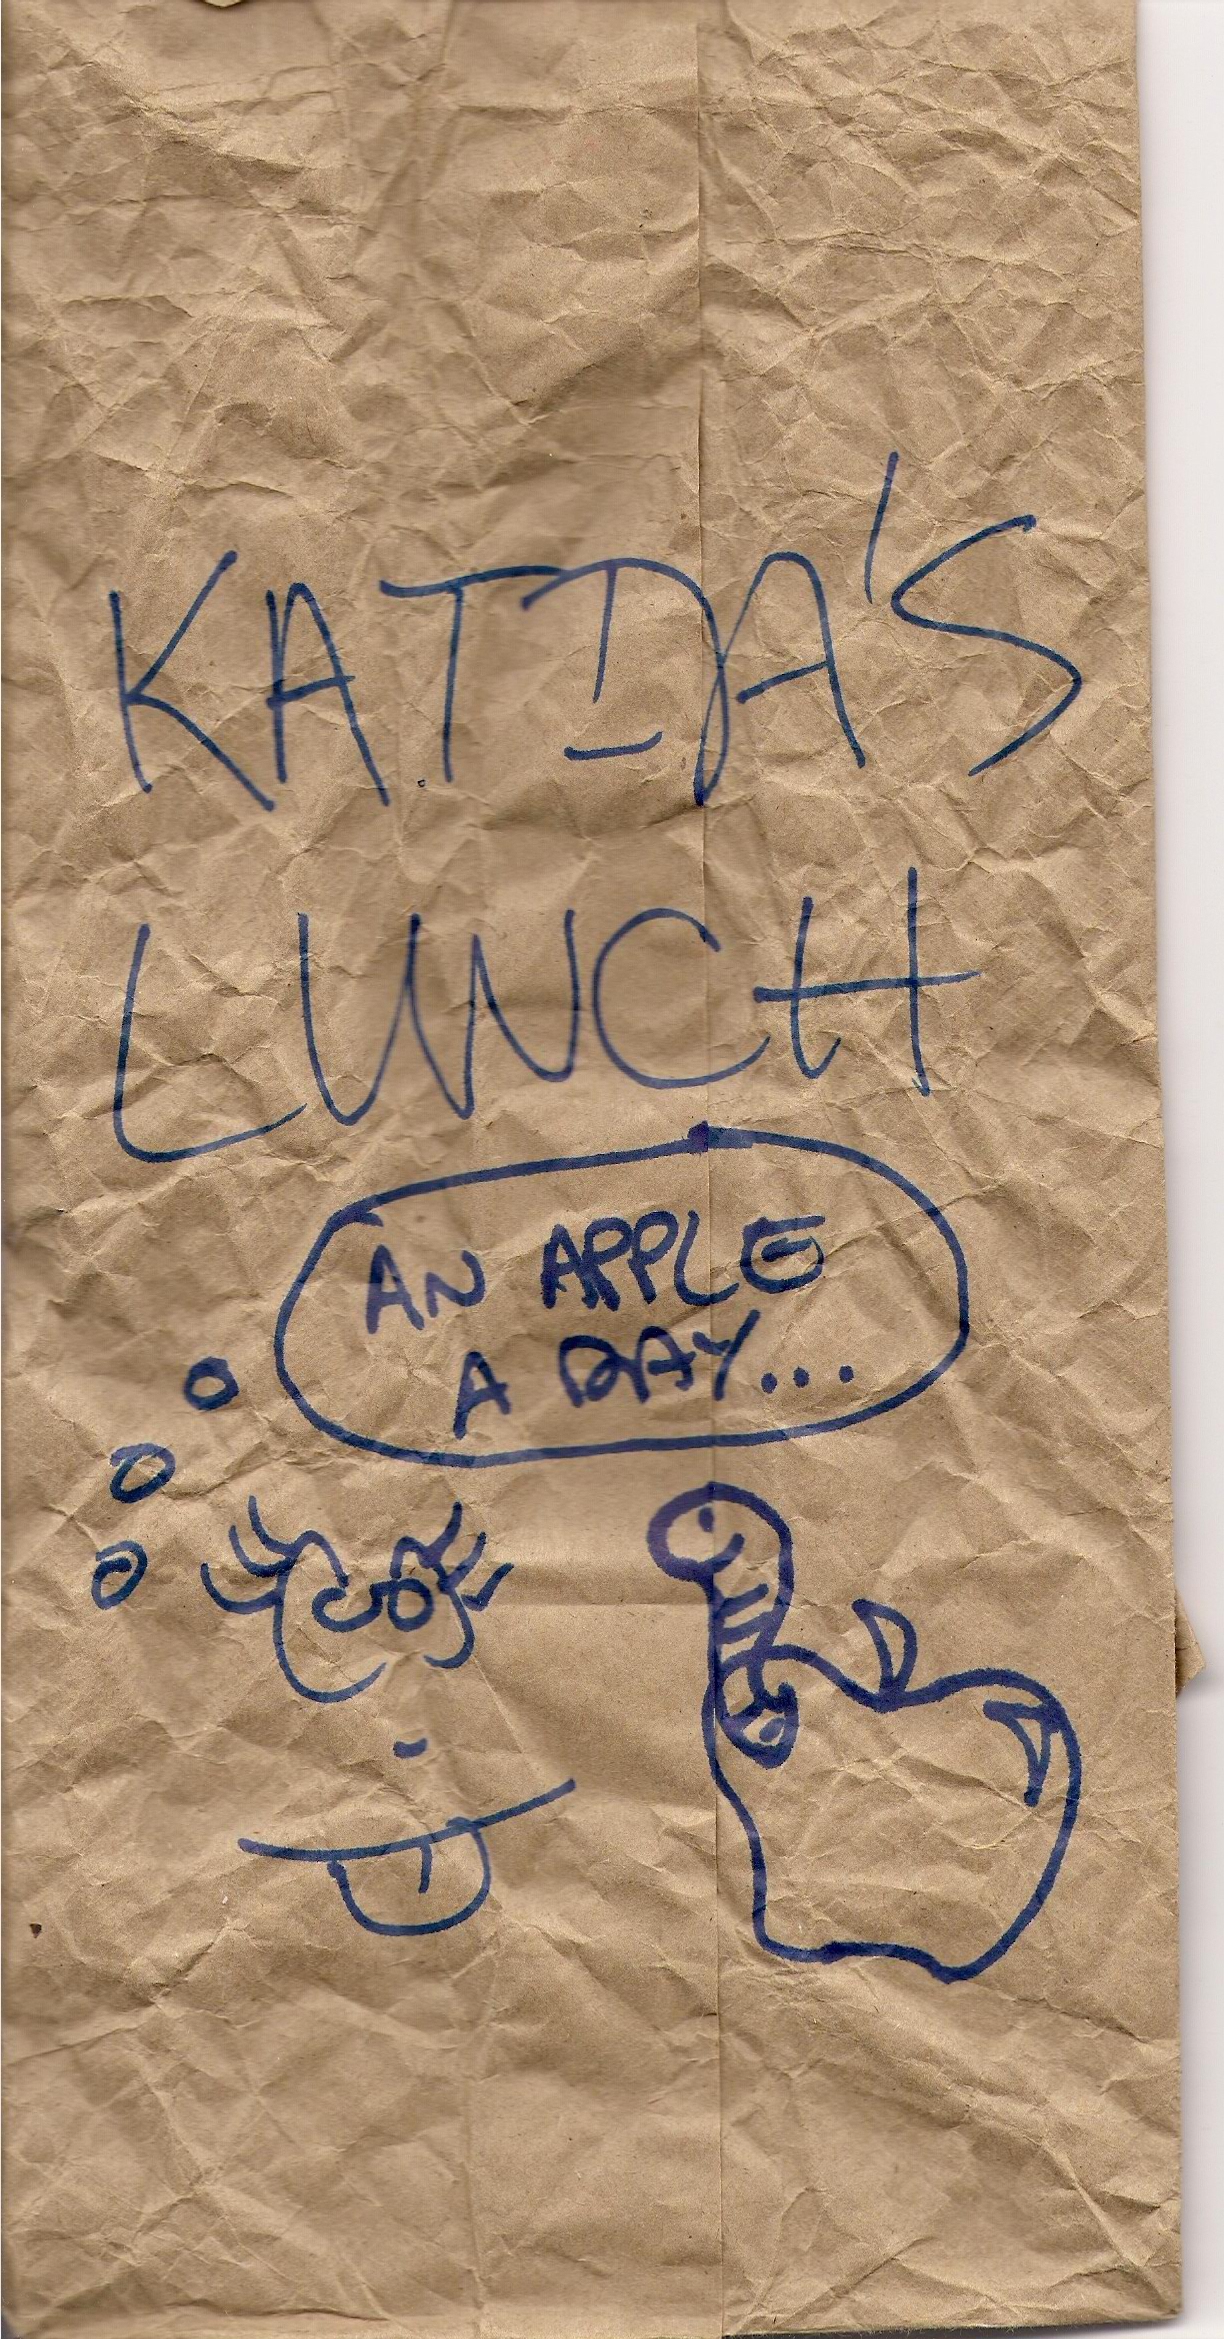 KATIA'S
LUNCH
AN APPLE
A DAY...